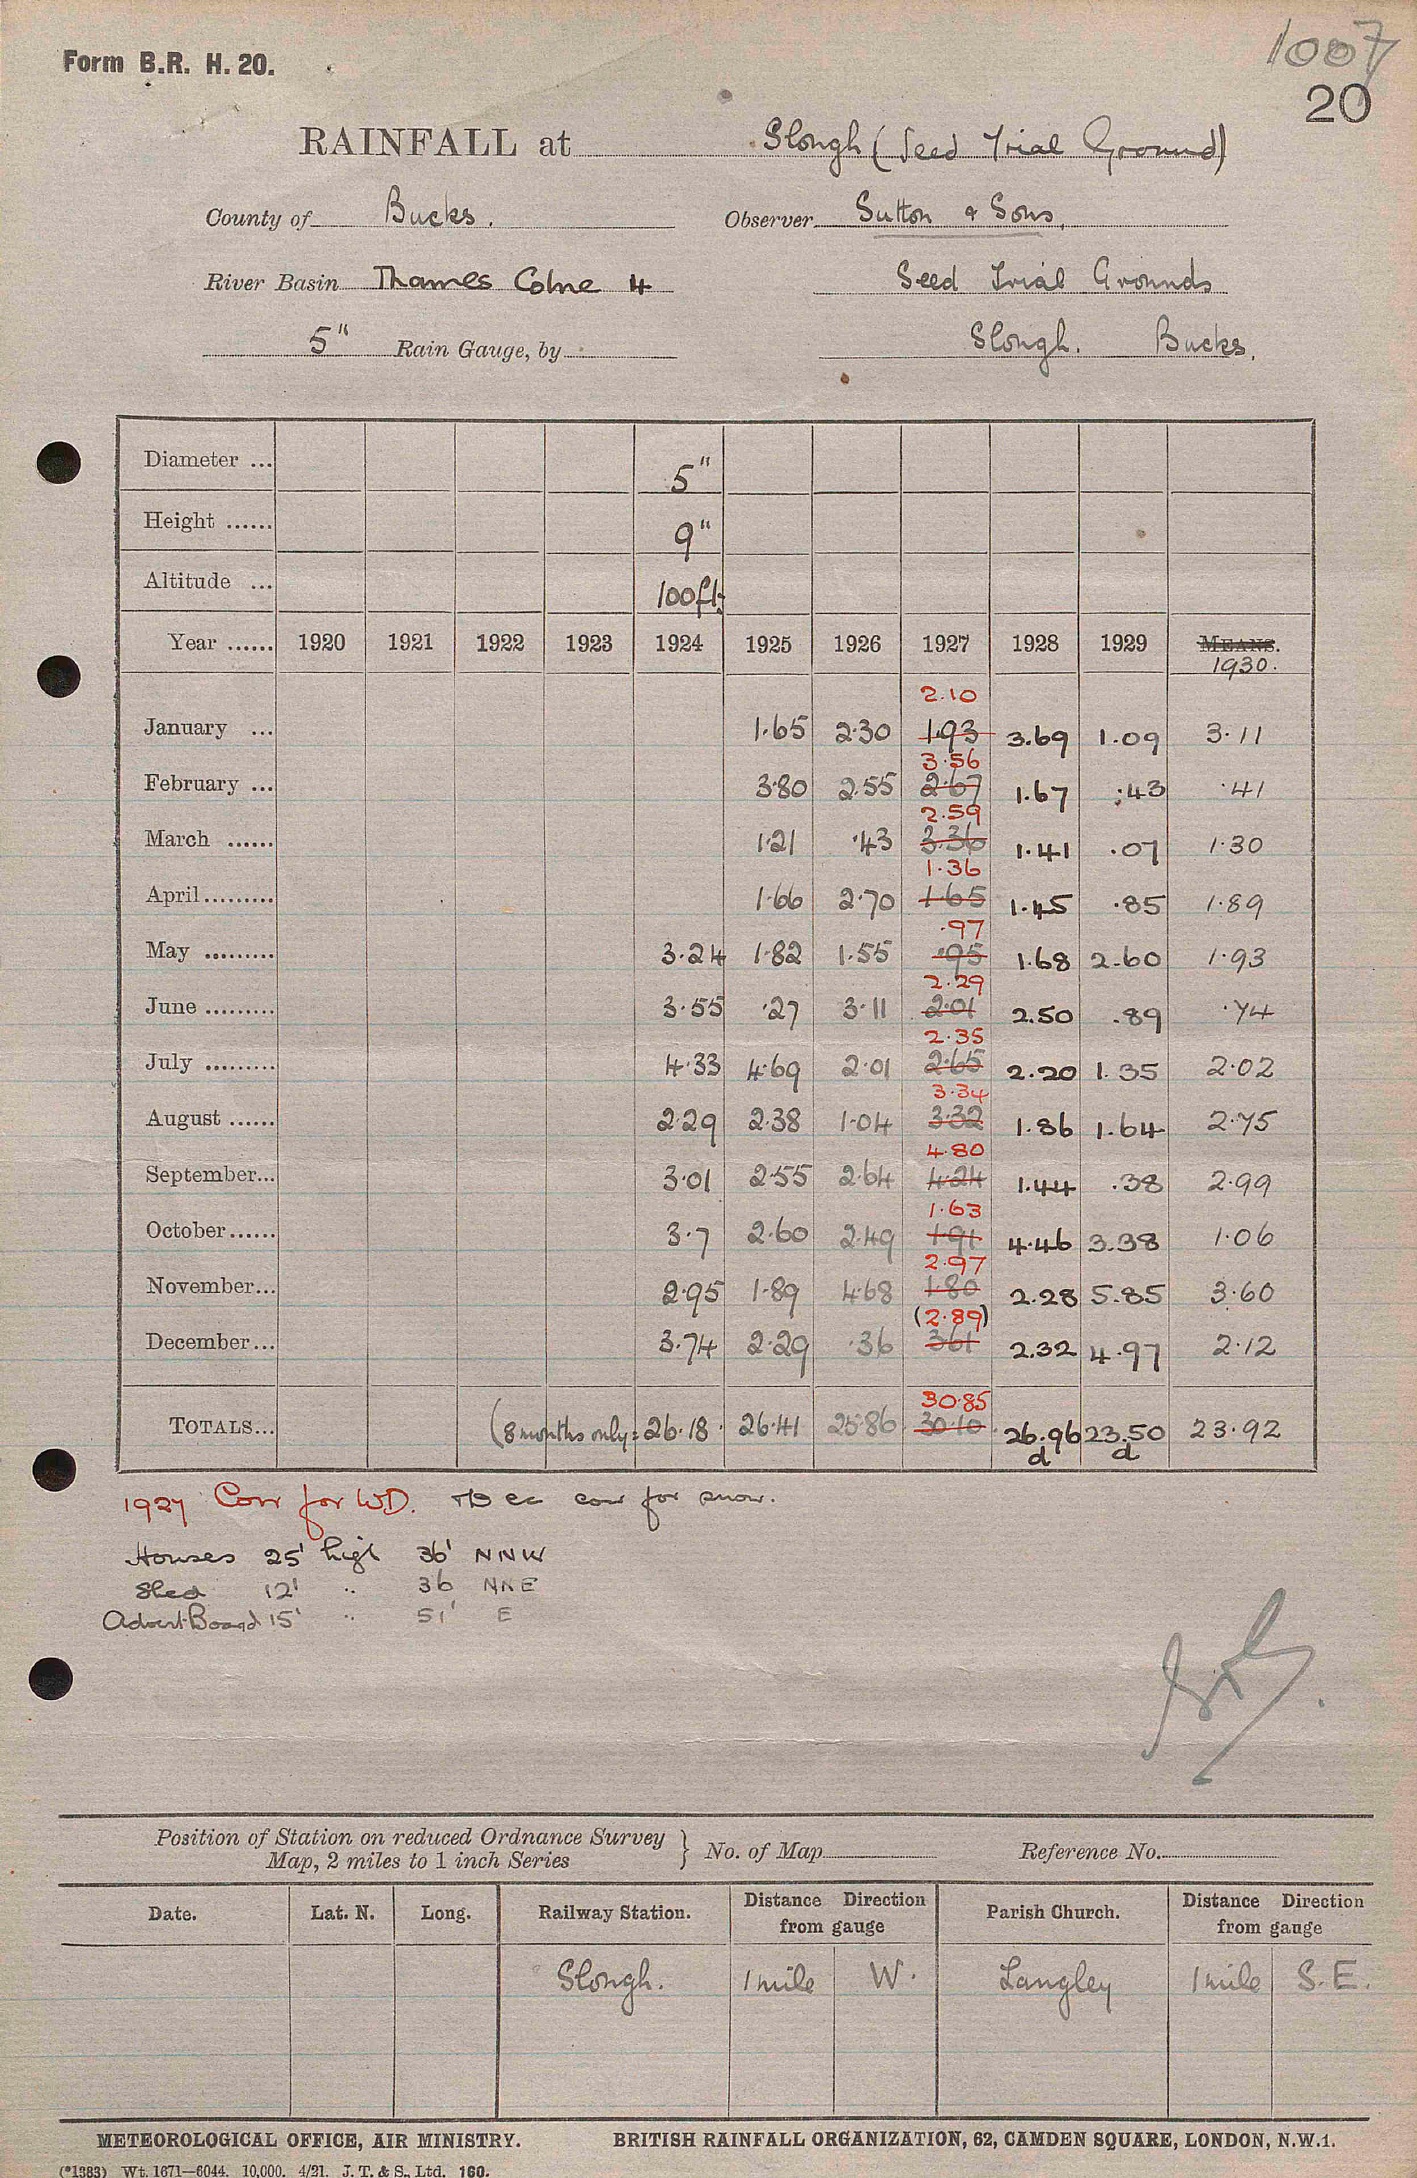 1007
Form B.R. H. 20.
20
RAINFALL at Slough (Seed Trial Ground)
County of Bucks. Observer Sutton & Sons,
River Basin Thames Colne 4 Seed Trial Grounds
5" Rain Gauge, by Slough. Bucks.
Diameter ... 5"
Height ...... 9"
Altitude ... 100ft.
Year ...... 1920 1921 1922 1923 1924 1925 1926 1927 1928 1929 MEANS.
1930.
2.10
January ... 1.65 2.30 1.93 3.69 1.09 3.11
3.56
February ... 3.80 2.55 2.67 1.67 .43 .41
2.59
March ...... 1.21 .43 3.36 1.41 .07 1.30
1.36
April......... 1.66 2.70 1.65 1.45 .85 1.89
.97
May ......... 3.24 1.82 1.55 .95 1.68 2.60 1.93
2.29
June ......... 3.55 .27 3.11 2.01 2.50 .89 .74
2.35
July ......... 4.33 4.69 2.01 2.65 2.20 1.35 2.02
3.34
August ...... 2.29 2.38 1.04 3.32 1.86 1.64 2.75
4.80
September... 3.01 2.55 2.64 4.24 1.44 .38 2.99
1.63
October...... 3.7 2.60 2.49 1.91 4.46 3.38 1.06
2.97
November... 2.95 1.89 4.68 1.80 2.28 5.85 3.60
(2.89)
December... 3.74 2.29 .36 3.61 2.32 4.97 2.12
30.85
TOTALS... (8 months only = 26.18. 26.41 25.86 30.10 26.96 23.50 23.92
d d
1927 Corr for WD. Dec corr for snow.
Houses 25' high 36' NNW
Shed 12' " 36 NNE
Advert Board 15' " 51' E
Position of Station on reduced Ordnance Survey
Map, 2 miles to 1 inch Series } No. of Map Reference No.
Date. Lat. N. Long. Railway Station. Distance Direction from gauge Parish Church. Distance Direction from gauge
Slough. 1 mile W. Langley 1 mile S.E.
METEOROLOGICAL OFFICE, AIR MINISTRY. BRITISH RAINFALL ORGANIZATION, 62, CAMDEN SQUARE, LONDON, N.W.1.
(*1383) Wt. 1671—6044. 10,000. 4/21. J. T. & S., Ltd. 160.